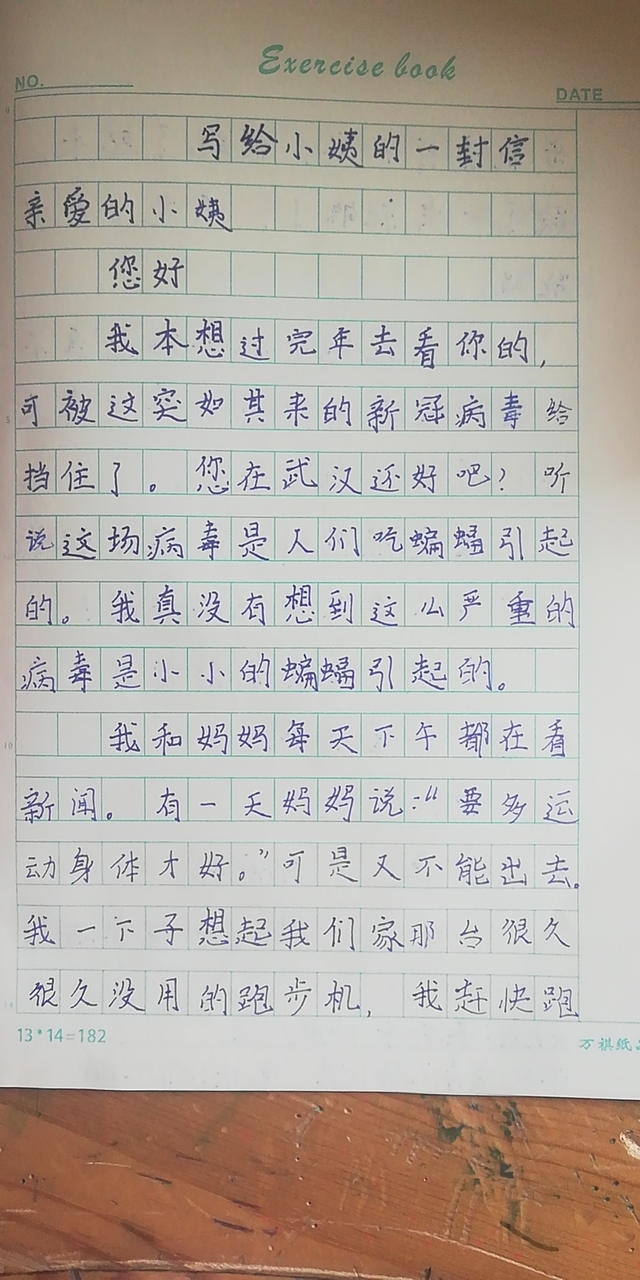 Exercise book
NO.
DATE
写给小姨的一封信
亲爱的小姨
您好
我本想过完年去看你的，
可被这突如其来的新冠病毒给
挡住了。您在武汉还好吧？听
说这场病毒是人们吃蝙蝠引起
的。我真没有想到这么严重的
病毒是小小的蝙蝠引起的。
我和妈妈每天下午都在看
新闻。有一天妈妈说：“要多运
动身体才好。”可是又不能出去。
我一下子想起我们家那台很久
很久没用的跑步机，我赶快跑
13*14=182
万祺纸